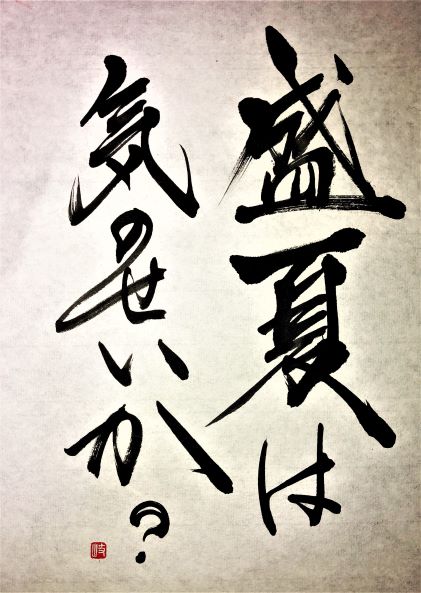 盛夏は
気のせいか?